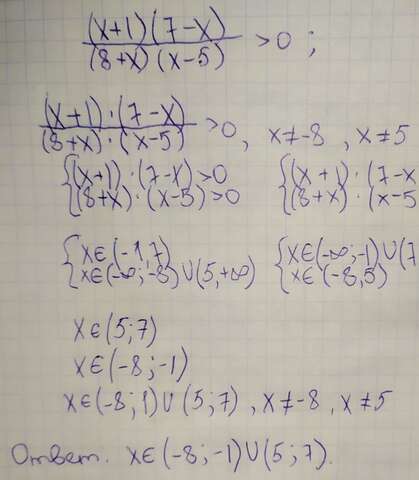 (x+1)(7-x)
(8+x)(x-5) >0 ;
(x+1)·(7-x)
(8+x)·(x-5) >0, x≠-8, x≠5
{(x+1)·(7-x)>0 {(x+1)·(7-x
{(8+x)·(x-5)>0 {(8+x)·(x-5
{x∈(-1,7) {x∈(-∞;-1)∪(7
{x∈(-∞;-8)∪(5,+∞) {x∈(-8,5)
x∈(5;7)
x∈(-8;-1)
x∈(-8;1)∪(5;7), x≠-8, x≠5
Ответ. x∈(-8;-1)∪(5;7).